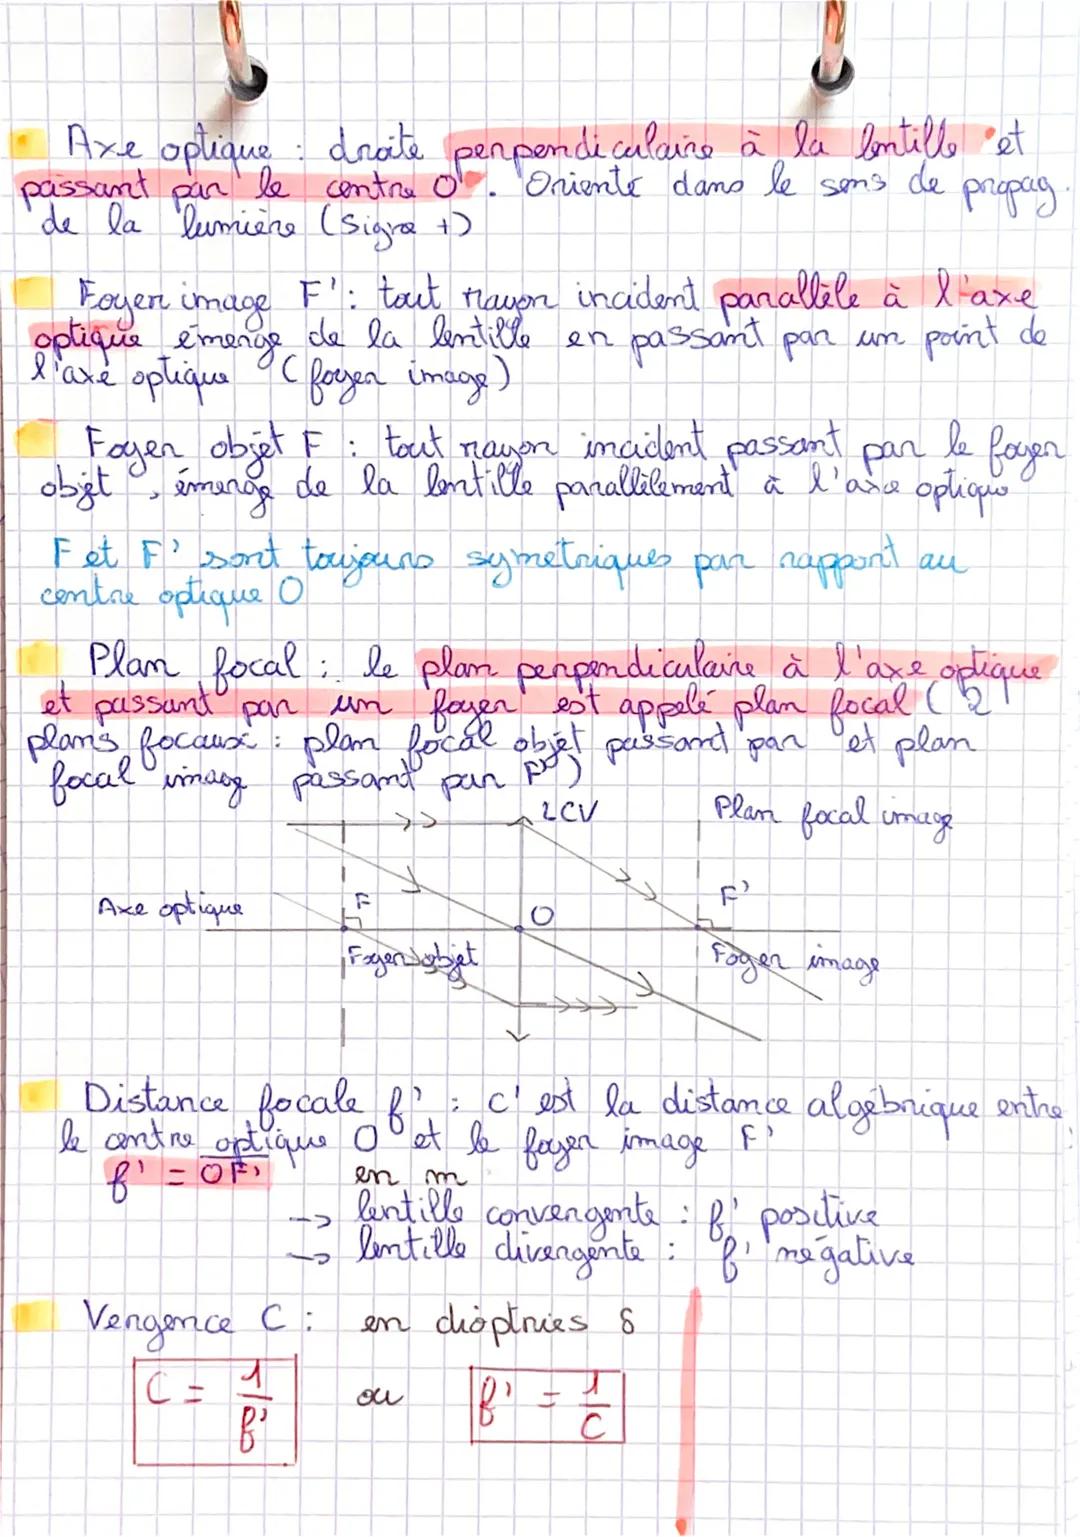 Axe optique : droite perpendiculaire à la lentille et
passant par le centre O . Orienté dans le sens de propag.
de la lumière (Signe +)
Foyer image F' : tout rayon incident parallèle à l'axe
optique émerge de la lentille en passant par un point de
l'axe optique (foyer image)
Foyer objet F : tout rayon incident passant par le foyer
objet , émerge de la lentille parallèlement à l'axe optique
F et F' sont toujours symétriques par rapport au
centre optique O
Plan focal : le plan perpendiculaire à l'axe optique
et passant par un foyer est appelé plan focal ( 2
plans focaux : plan focal objet passant par et plan
focal image passant par F' )
LCV
Plan focal image
Axe optique
F
O
F'
Foyer objet
Foyer image
Distance focale f' : c'est la distance algébrique entre
le centre optique O et le foyer image F'
f' = OF' en m
-> lentille convergente : f' positive
-> lentille divergente : f' négative
Vergence C : en dioptries δ
C = 1/f' ou f' = 1/C